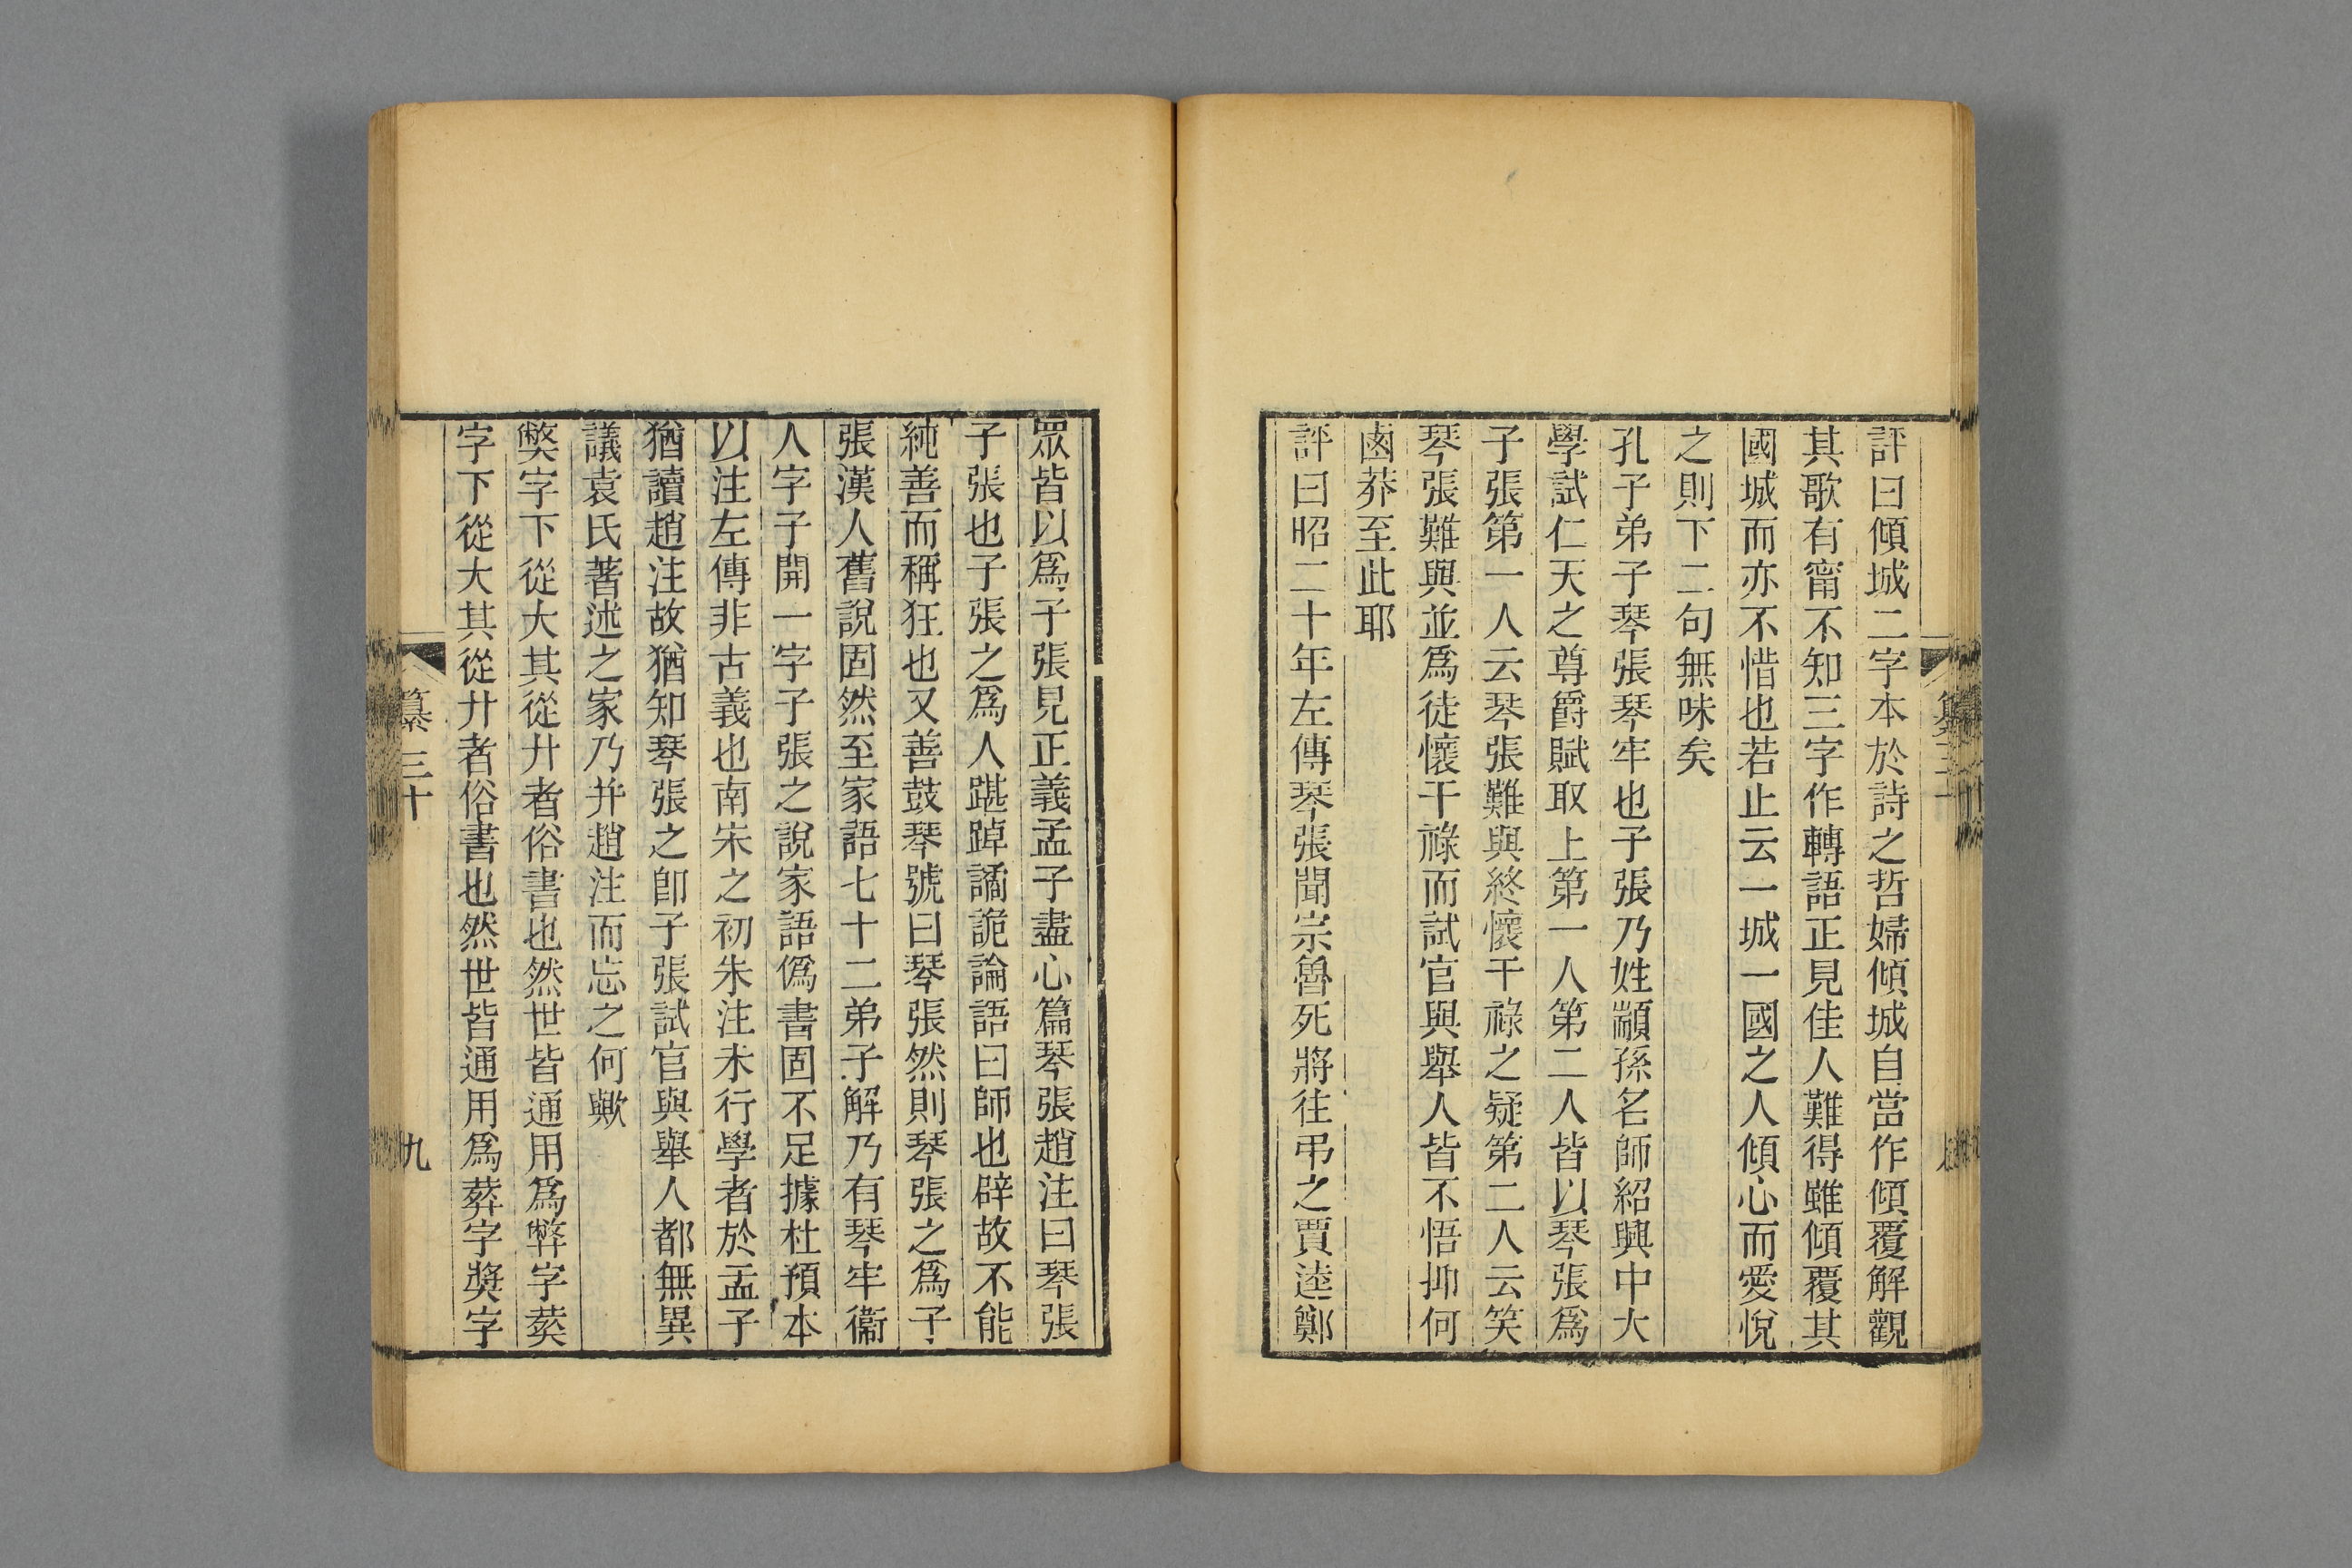 評曰傾城二字本於詩之哲婦傾城自當作傾覆解觀
其歌有甯不知三字作轉語正見佳人難得雖傾覆其
國城而亦不惜也若止云一城一國之人傾心而愛悅
之則下二句無味矣
孔子弟子琴張琴牢也子張乃姓顓孫名師紹興中大
學試仁天之尊爵賦取上第一人第二人皆以琴張爲
子張第一人云琴張難與終懷干祿之疑第二人云笑
琴張難與並爲徒懷干祿而試官與舉人皆不悟抑何
鹵莽至此耶
評曰昭二十年左傳琴張聞宗魯死將往弔之賈逵鄭
眾皆以爲子張見正義孟子盡心篇琴張趙注曰琴張
子張也子張之爲人踸踔譎詭論語曰師也辟故不能
純善而稱狂也又善鼓琴號曰琴張然則琴張之爲子
張漢人舊說固然至家語七十二弟子解乃有琴牢衞
人字子開一字子張之說家語僞書固不足據杜預本
以注左傳非古義也南宋之初朱注未行學者於孟子
猶讀趙注故猶知琴張之卽子張試官與舉人都無異
議袁氏著述之家乃并趙注而忘之何歟
獘字下從大其從廾者俗書也然世皆通用爲弊字葬
字下從大其從廾者俗書也然世皆通用爲葬字奬字
纂三十
九